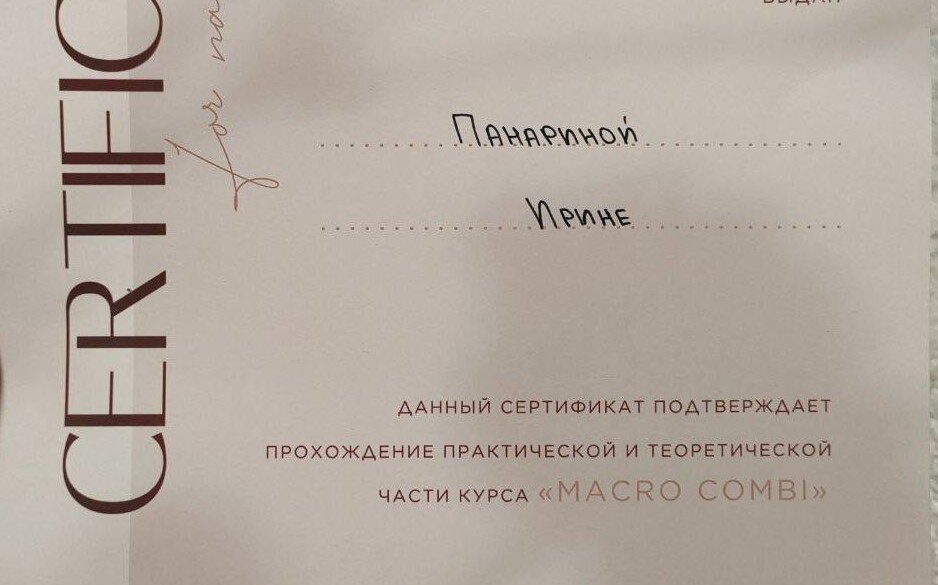 ВЫДАН
CERTIFIC
for na
Панариной
Ирине
ДАННЫЙ СЕРТИФИКАТ ПОДТВЕРЖДАЕТ
ПРОХОЖДЕНИЕ ПРАКТИЧЕСКОЙ И ТЕОРЕТИЧЕСКОЙ
ЧАСТИ КУРСА «MACRO COMBI»